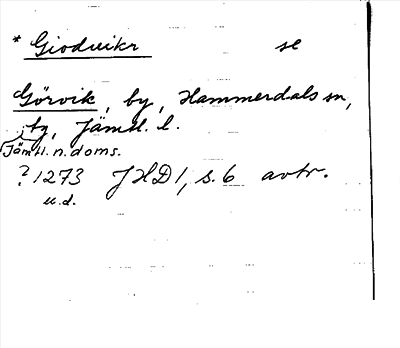 * Giodvikr se
Görvik, by, Hammerdals sn,
tg, Jämtl. l.
Jämtl. n. doms.
? 1273 JHD 1, s. 6 avtr.
u.d.